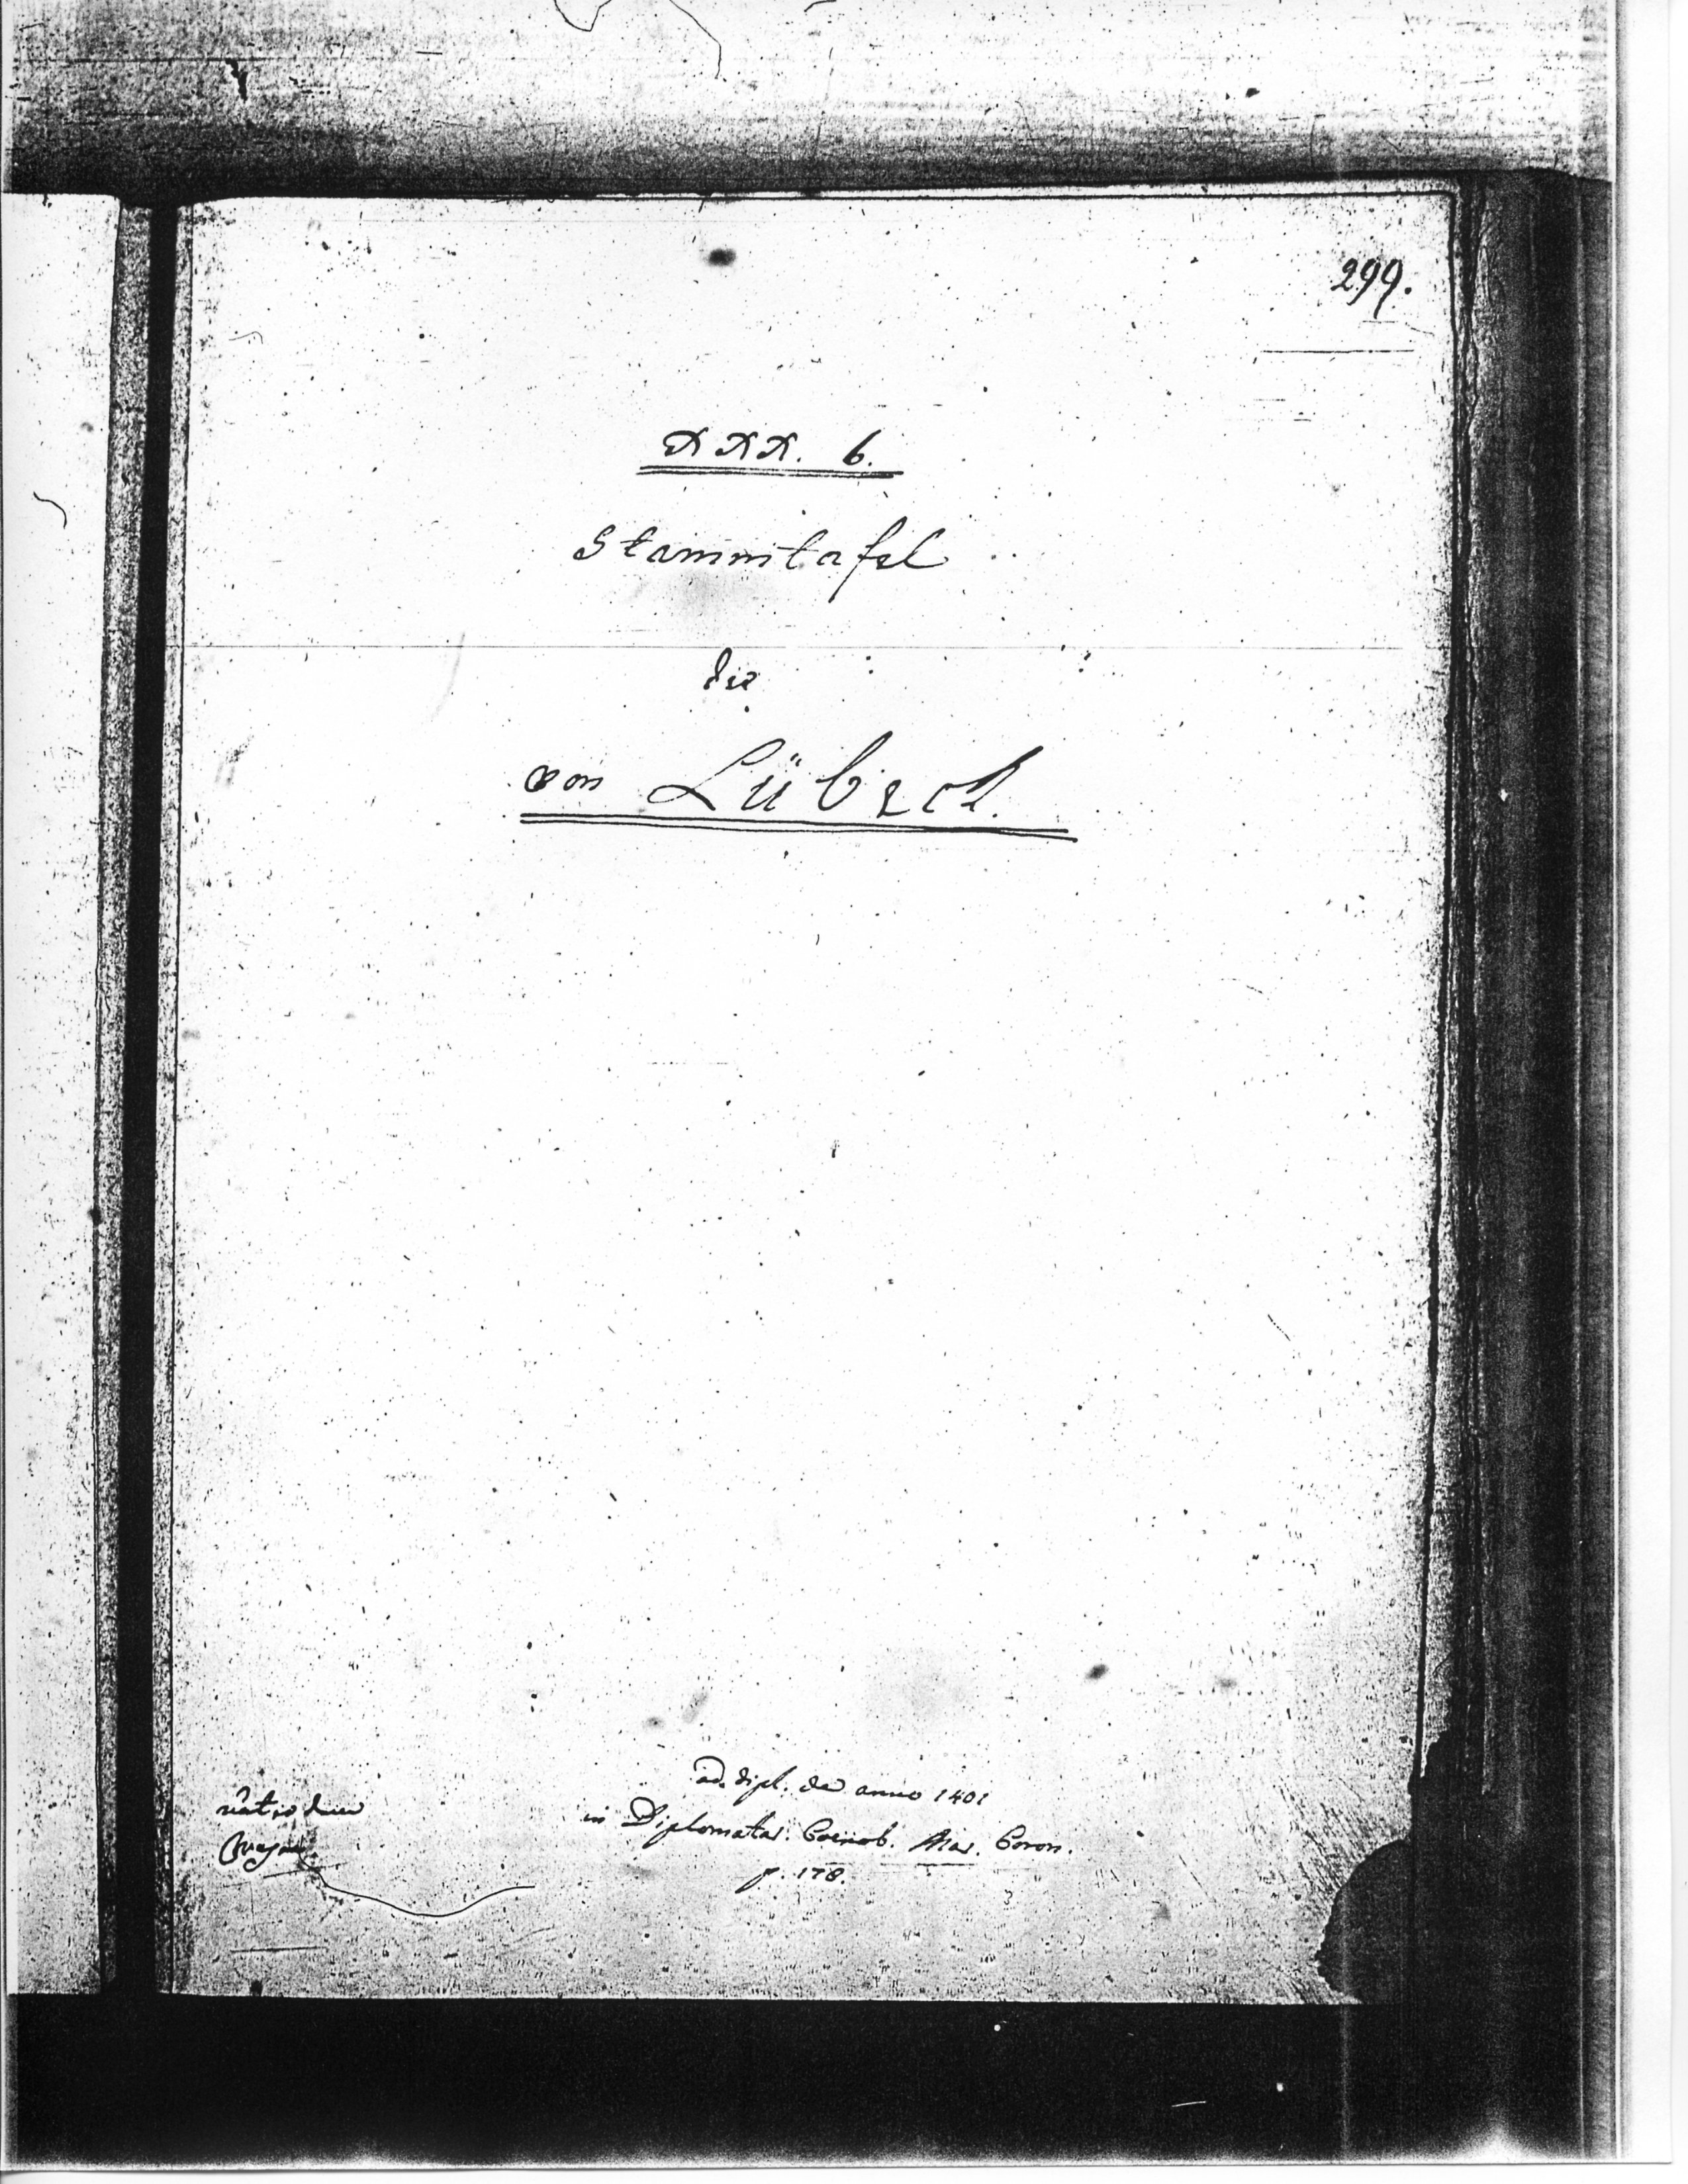 299.
XXX. b.
Stammtafel
die
von Lübeck.
ad. dipl. de anno 1401
in Diplomatar. Coenob. Mar. Coron.
p. 178.